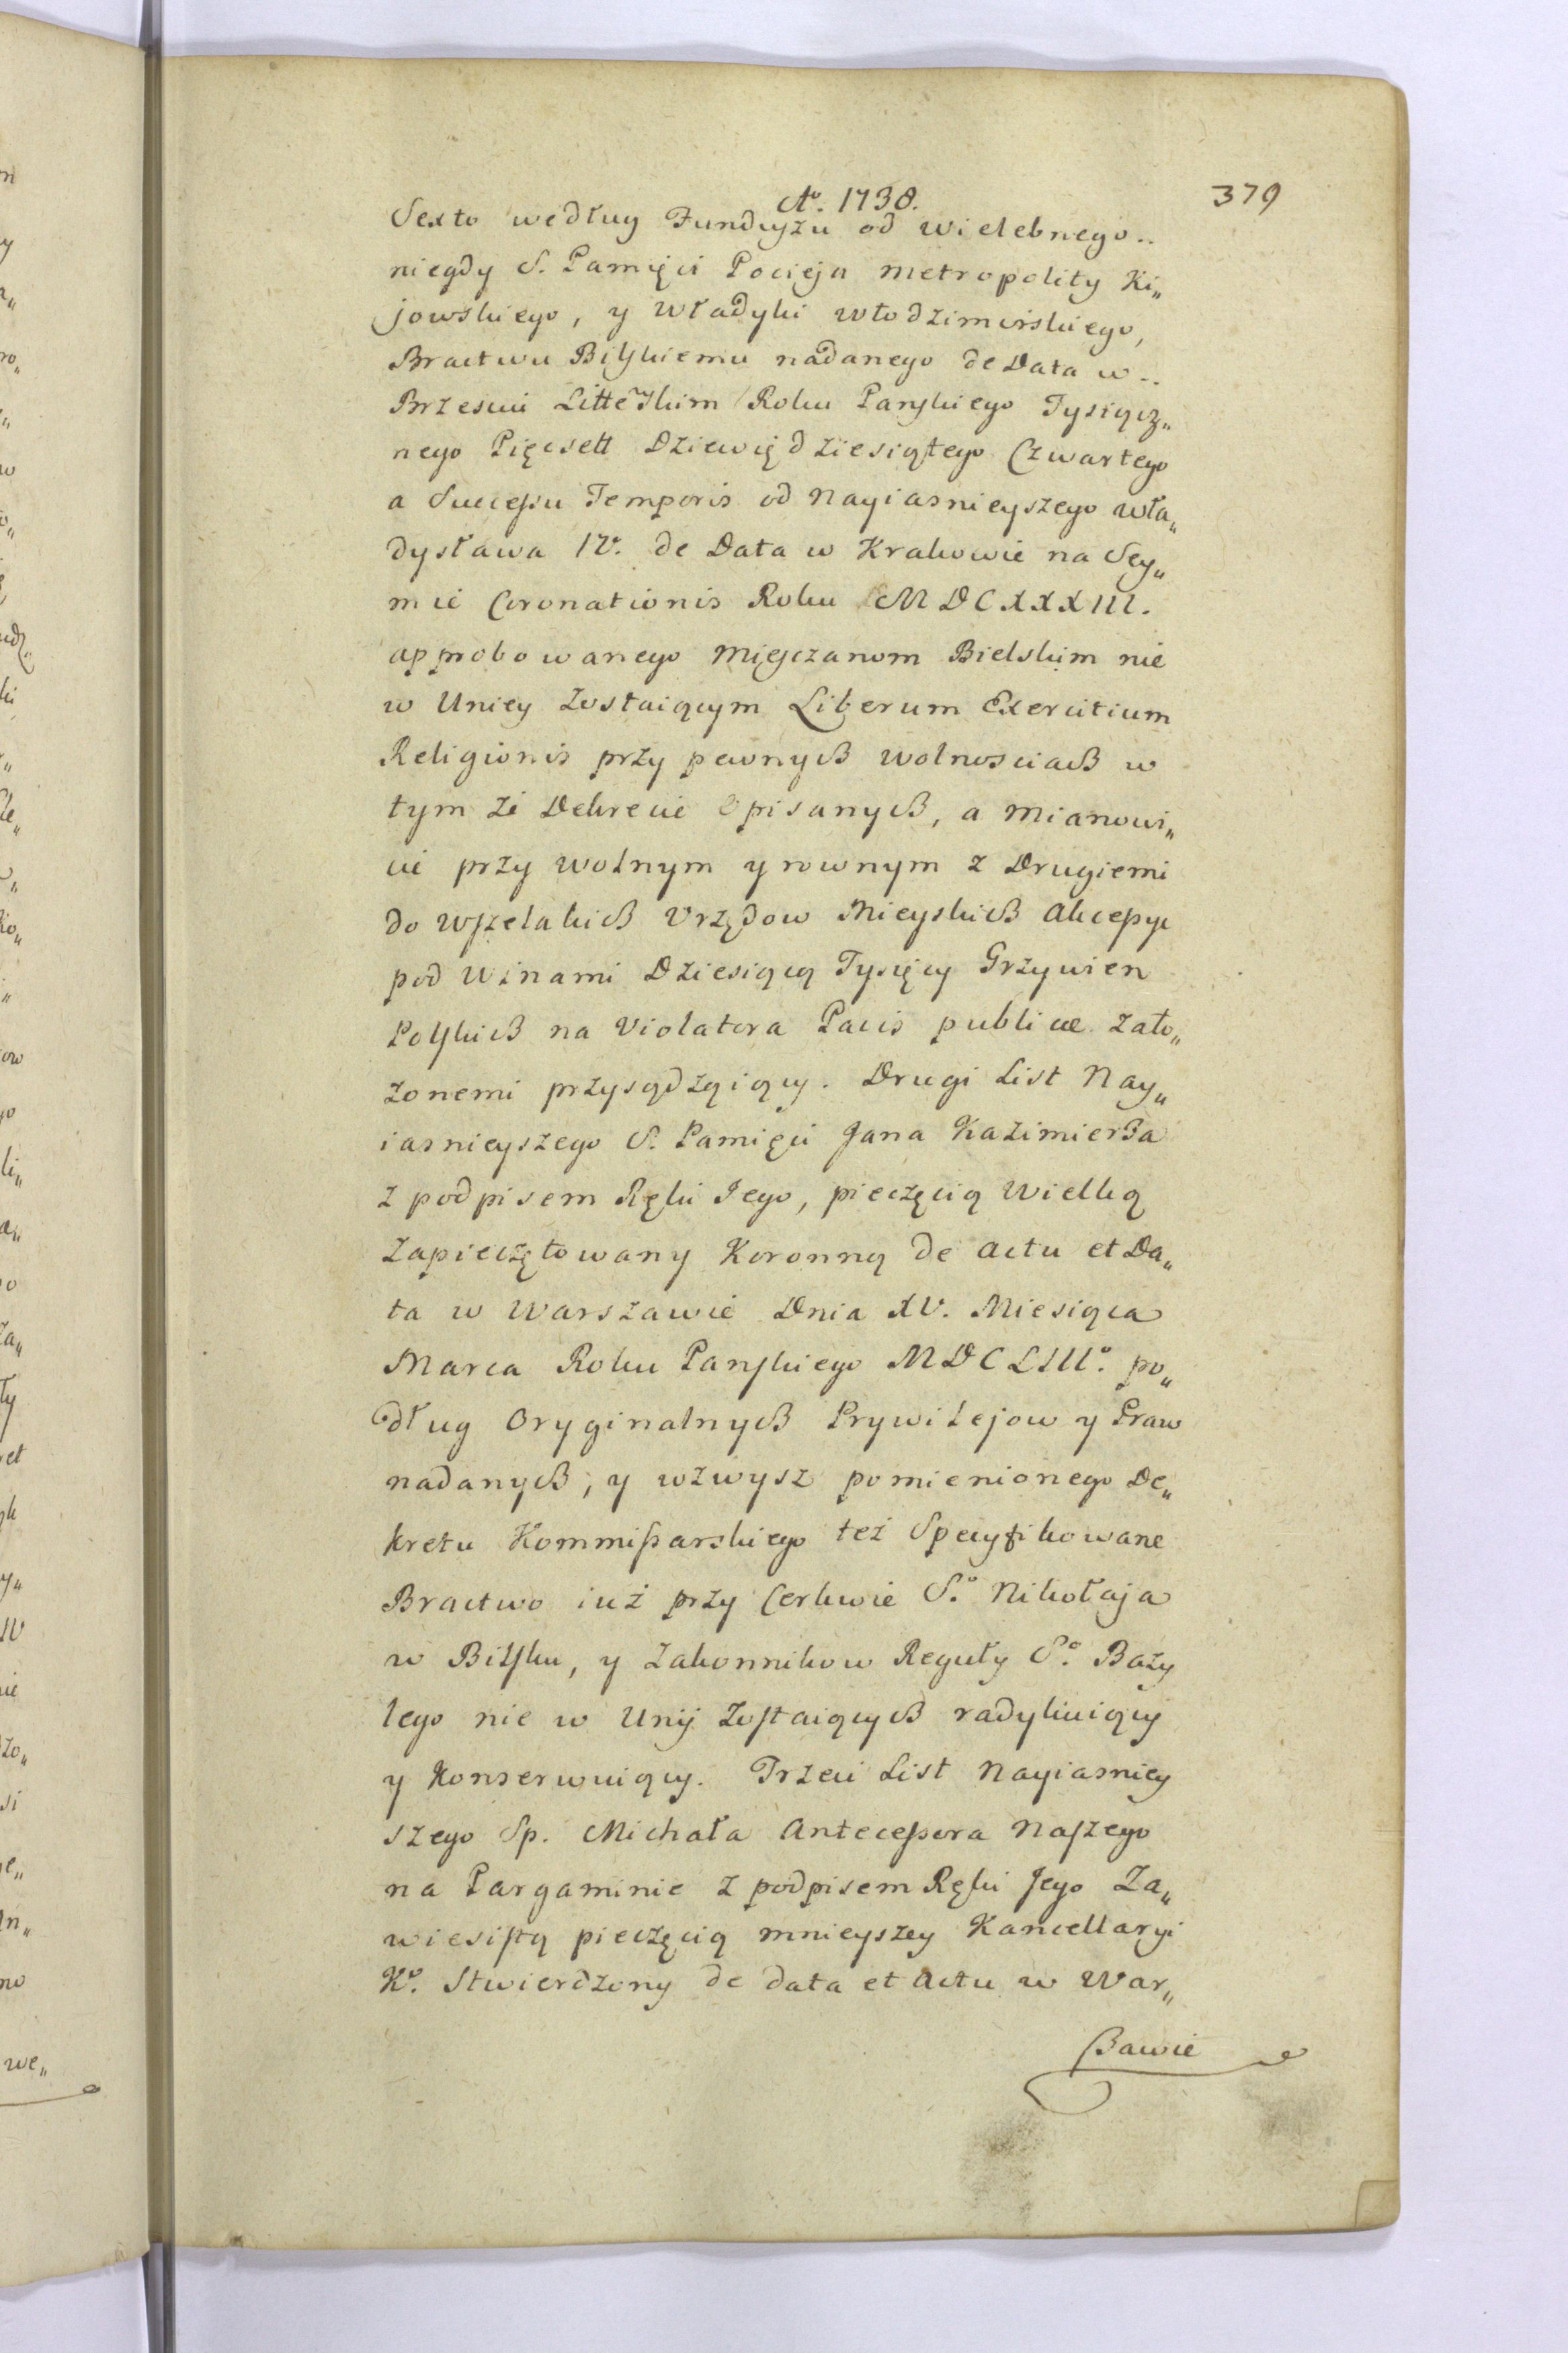 Ao. 1738.
379
Sexto według Funduszu od wielebnego..
niegdy S. Pamięci Pocieja metropolity Ki„
jowskiego, y Władyki Włodzimirskiego,
Bractwu Bilskiemu nadanego de Data w..
Brzesciu Litte͠skim Roku Panskiego Tysiącz„
nego Pięcsett Dziewiędziesiątego Czwartego
a Successu Temporis od Nayiasnieyszego Wła„
dysława IV. de Data w Krakowie na Sey„
mie Coronationis Roku MDCXXXIII.
approbowanego Mięsczanom Bielskim nie
w Uniey zostaiącym Liberum Exercitium
Religionis przy pewnych wolnosciach w
tym że Dekrecie opisanych, a mianowi„
cie przy wolnym y rownym z Drugiemi
do wszelakich Vrzędow Mieyskich Akcessye
pod winami Dziesiącą Tysięcy Grzywien
Polskich na Violatora Pacis publicæ zało„
zonemi przysądzaiący. Drugi List Nay„
iasnieyszego S. Pamięci Jana Kazimierza
z podpisem Ręki Jego, pieczęcią Wielką
zapieczętowany Koronną de actu et Da„
ta w Warszawie Dnia XV. Miesiąca
Marca Roku Panskiego MDCLIIIo. po„
dług Oryginalnych Prywilejow y Praw
nadanych, y wzwysz pomienionego De„
kretu Kommissarskiego też Specyfikowane
Bractwo iuż przy Cerkwie So. Nikołaja
w Bilsku, y Zakonnikow Reguły So. Bazy
lego nie w Unij zostaiących radykuiący
y Konserwuiący. Trzeci List Nayiasniey
szego Sp. Michała Antecessora Naszego
na Pargaminie z podpisem Ręki Jego Za„
wiesistą pieczęcią mnieyszey Kancellaryi
Ko. Stwierdzony de data et Actu w War„
szawie